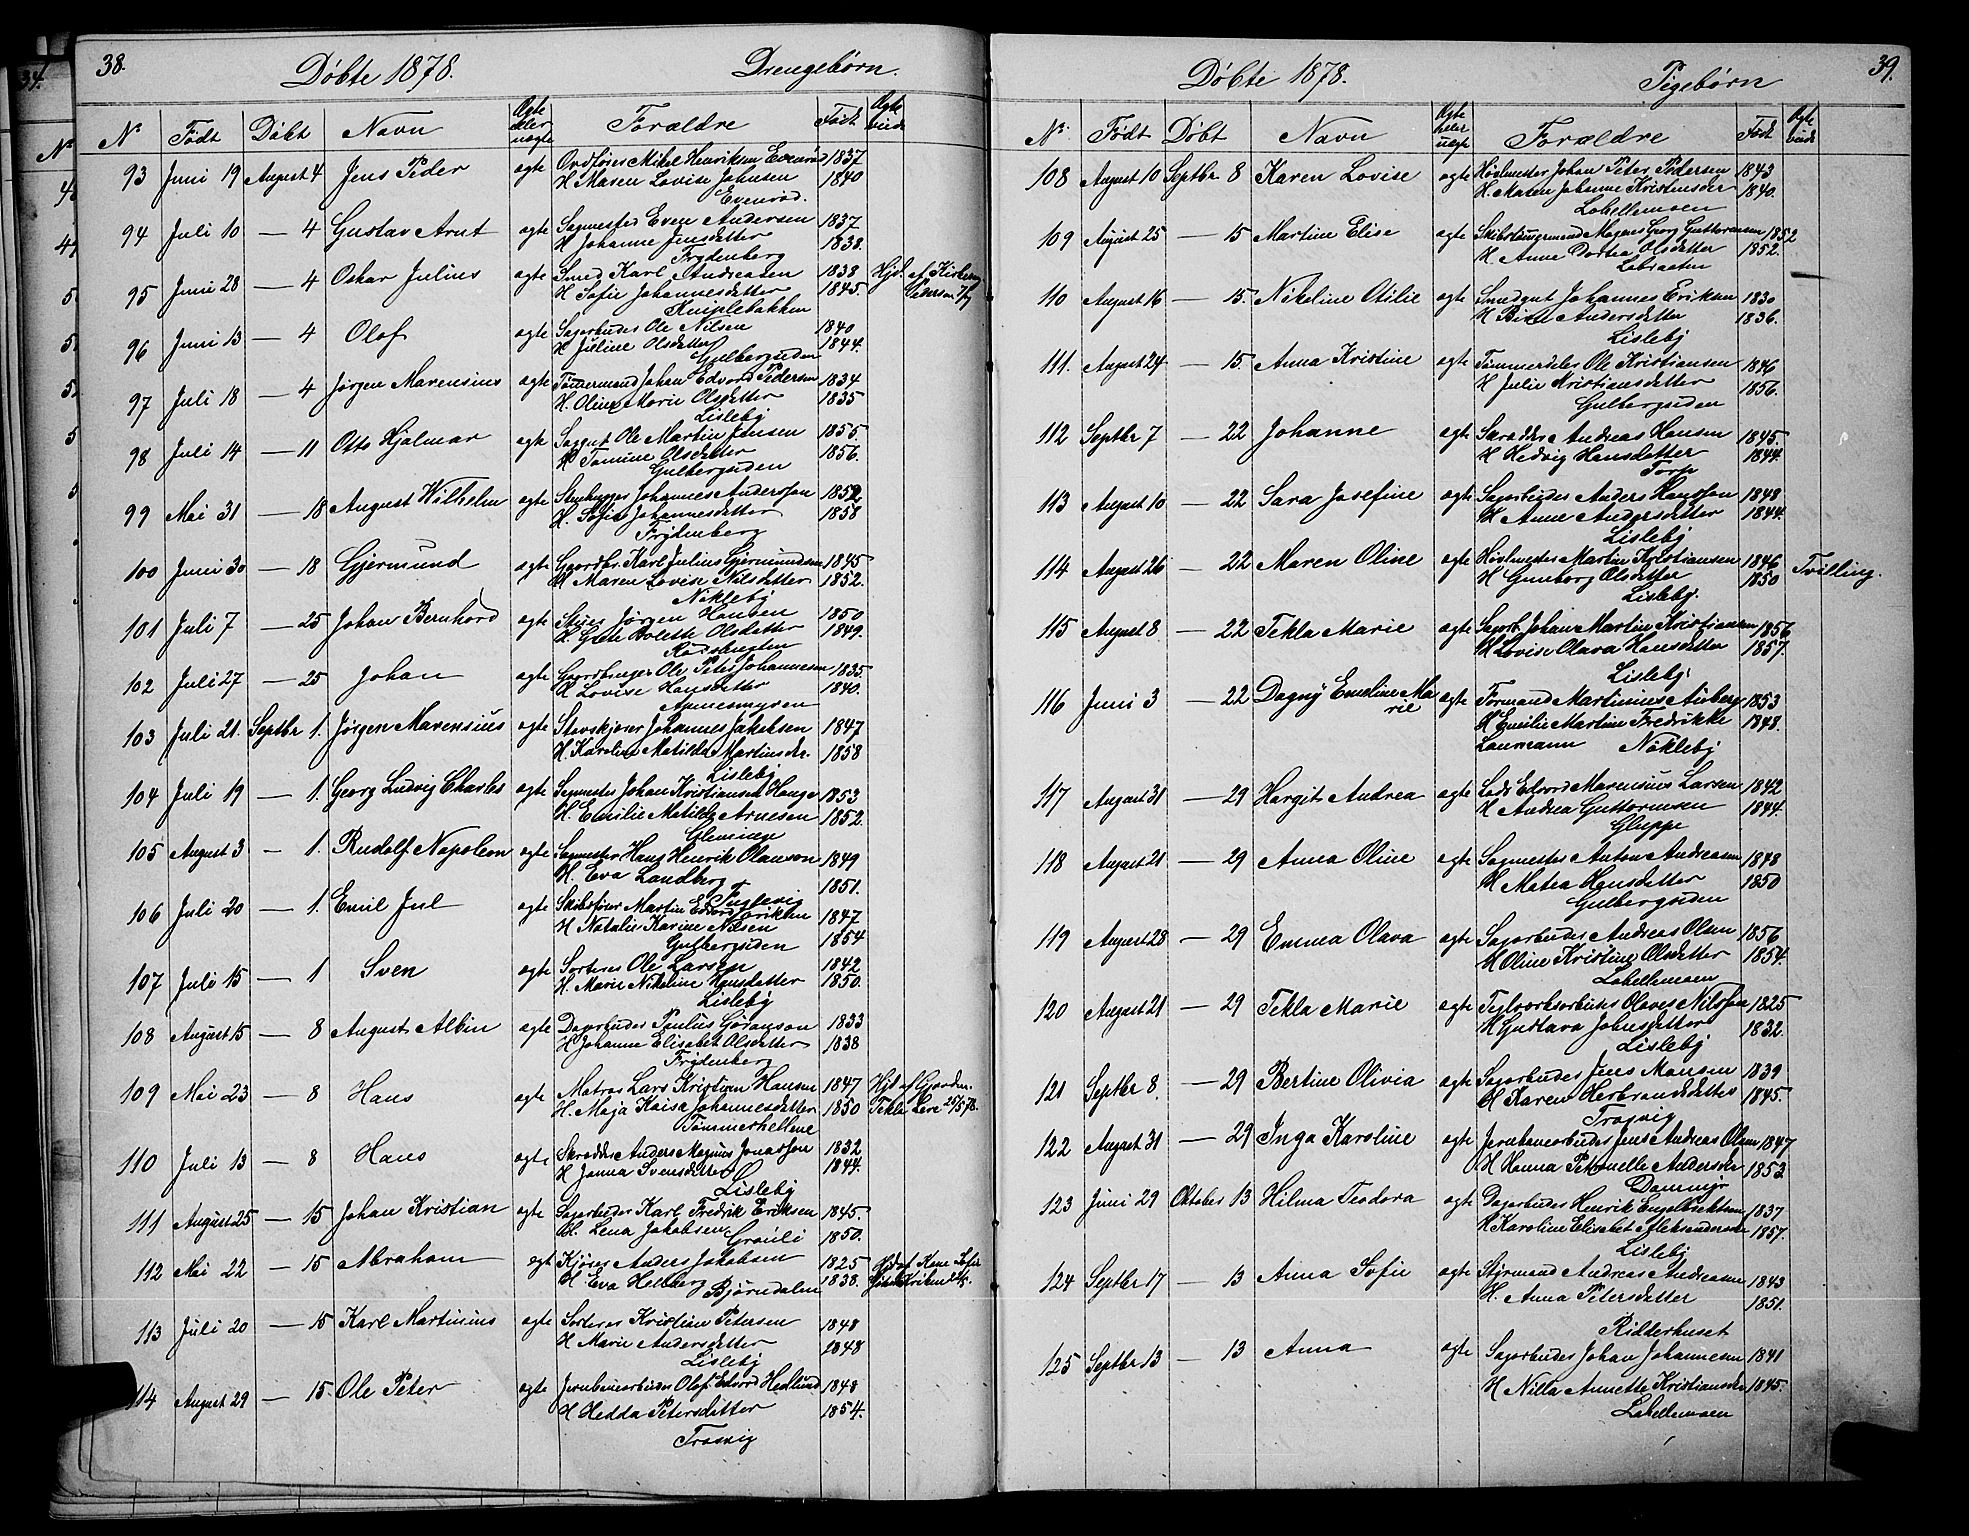 38.
Døbte 1878.
Drengebørn.
No Født Døbt Navn Ægte eller uægte Forældre Født
93 Juni 19 August 4 Jens Peder ægte Mikel Henriksen Evenrød 1837
H Maren Lovise Johnsen 1840
Evenrød.
94 Juli 10 — 4 Gustav Arnt ægte Sagmester Even Andersen 1837
H Johanne Jensdatter 1838.
Frydenberg
95 Juni 28 — 4 Oskar Julius ægte Smed Karl Andreasen 1838 Hjd. af
H Sofie Johannesdatter 1845. Pederson
Kniplebakken
96 Juni 13 — 4 Olof ægte Sagarbeider Ole Nilsen 1840
H Juline Olsdatter 1844.
Gulbergsiden
97 Juli 18 — 4 Jørgen Marensius ægte Tømmermand Johan Edvard Pedersen 1834
H. Oline Marie Olsdatter 1835
Lisleby
98 Juli 14 — 11 Otto Hjalmar ægte Saggut Ole Martin Jensen 1855.
H Tomine Olsdatter 1856.
Gulbergsiden
99 Mai 31 — 18 August Wilhelm ægte Stenhugger Johannes Andersson 1852
H. Sofie Johannesdatter 1858
Frydenberg
100 Juni 30 — 18 Gjermund ægte Gaardbr. Karl Julius Gjermundsen 1845
H Maren Lovise Nilsdatter 1852.
Nøkleby
101 Juli 7 — 25 Johan Bernhard ægte Jørgen Hansen 1850
H. Bolette Olsdatter 1849.
102 Juli 27 — 25 Johan ægte Gaardbruger Ole Peter Johannesen 1835.
H Lovise Hansdatter 1840.
103 Juli 21. Septbr 1. Jørgen Marensius ægte Stavskjærer Johannes Jakobsen 1847
H. Karoline Matilda Martinsdr. 1858
Lisleby
104 Juli 19 — 1. Georg Ludvig Charles ægte Sagmester Johan Kristiansen Hauge 1853
H. Emilie Matilde Arnesen 1852.
Glemmen
105 August 3 — 1. Rudolf Napoleon ægte Sagmester Hans Henrik Olausson 1849
H. Eva Landberg 1851.
Fuglevig
106 Juli 20 — 1. Emil Jul ægte Skibsfører Martin Edvard Eriksen 1847
H Natalie Karine Nilsen 1854
Gulbergsiden
107 Juli 15 — 1 Sven ægte Sorterer Ole Larsen 1842
H. Marie Nikoline Hansdatter 1850.
Lisleby
108 August 15 — 8 August Albin ægte Dagarbeider Paulus Gøranson 1833
H Johanne Elisabet Olsdatter 1838
Frydenberg
109 Mai 23 — 8 Hans ægte Matros Lars Kristian Hansen 1847 Hjd af Gjordm.
H. Maja Kaisa Johannesdatter 1850 Tekla Lere 25/5 78.
Tømmerhellene
110 Juli 13 — 8 Hans ægte Skrædder Anders Magnus Jonasson 1832
H Jonna Svensdatter 1844.
Lisleby
111 August 25 — 15 Johan Kristian ægte Sagarbeider Karl Fredrik Eriksen 1845.
H. Lena Jakobsen 1850.
Graali
112 Mai 22 — 15 Abraham ægte Kjører Anders Jakobsen 1825 Hjd af Kone Sofie
H Eva Helberg 1838.
Bjørndalen
113 Juli 20 — 15 Karl Martinius ægte Sorterer Kristian Petersen 1848
H Marie Andersdatter 1848
Lisleby
114 August 29 — 15. Ole Peter ægte Jernbanearbeider Olof Edvard Hedlund 1848
H Hedda Petersdatter 1854.
Trosvig
39.
Døbte 1878.
Pigebørn
No. Født Døbt Navn Ægte eller uægte Forældre Født
108 August 10 Septbr 8 Karen Lovise ægte Høvlmester Johan Peter Pedersen 1843
H. Maren Johanne Kristiansdr 1840.
Labellemoen
109 August 25 — 15 Martine Elise ægte Skibstømmermand Magnus Georg Guttormsen 1852
H. Anne Dortea Olsdatter 1852.
110 August 16 — 15. Nikoline Otilie ægte Smedgut Johannes Eriksen 1830
H Andersdatter 1836.
Lisleby
111. August 24 — 15. Anna Kristine ægte Tømmerdeler Ole Kristiansen 1846
H Julie Kristiansdatter 1856.
Gulbergsiden
112 Septbr 7 — 22 Johanne ægte Skrædder Andreas Hansen 1845.
H Hedvig Hansdatter 1844.
Torp
113 August 10 — 22 Sara Josefine ægte Sagarbeider Anders Hansson 1848
H Anne Andersdatter 1844.
Lisleby
114 August 26 — 22 Maren Oline ægte Høvlmester Martin Kristiansen 1846 Tvilling.
H Gunborg Olsdatter 1850
Lisleby.
115 August 8 — 22 Tekla Marie ægte Sagarb. Johan Martin Kristiansen 1856
H Lovise Olava Hansdatter 1857.
Lisleby
116 Juni 3 — 22 Dagny Emeline Marie ægte Formand Martinius Amberg 1853
H Emilie Martine Fredrikke 1848.
Laumann Nøkleby
117 August 31 — 29 Hargit Andrea ægte Lods Edvard Marensius Larsen 1842
H Andrea Guttormsen 1844.
Gluppe
118 August 21 — 29 Anna Oline ægte Sagmester Anton Andreasen 1848
H Matea Hansdatter 1850
Gulbergsiden
119 August 28 — 29 Emma Olava ægte Sagarbeider Andreas Olsen 1856
H Oline Kristine Olsdatter 1854.
Labellemoen
120 August 21 — 29 Tekla Marie ægte Teglværksarbeider Olaves Nilsson 1825
H Gustava Johnsdatter 1832.
Lisleby
121 Septbr 8. — 29 Bertine Olivia ægte Sagarbeider Jens Monsen 1839
H Karen Herbrandsdatter 1845.
Trosvig
122 August 31 — 29 Inga Karoline ægte Jernbanearbeider Jens Andreas Olsen 1847
H Hanna Petronelle Andersdr 1853
Dammyr
123 Juni 29 Oktober 13 Hilma Teodora ægte Dagarbeider Henrik Engelbrektsen 1837
H Karoline Elisabet Aleksandersdr 1857.
Lisleby
124 Septbr 17 — 13 Anna Sofie ægte Styrmand Andreas Andreasen 1843
H. Anna Petersdatter 1851.
Ridderhuset
125 Septbr 13 — 13 Anna ægte Sagarbeider Johan Johannesen 1841
H Nilla Annette Kristiansdr 1845.
Labellemoen